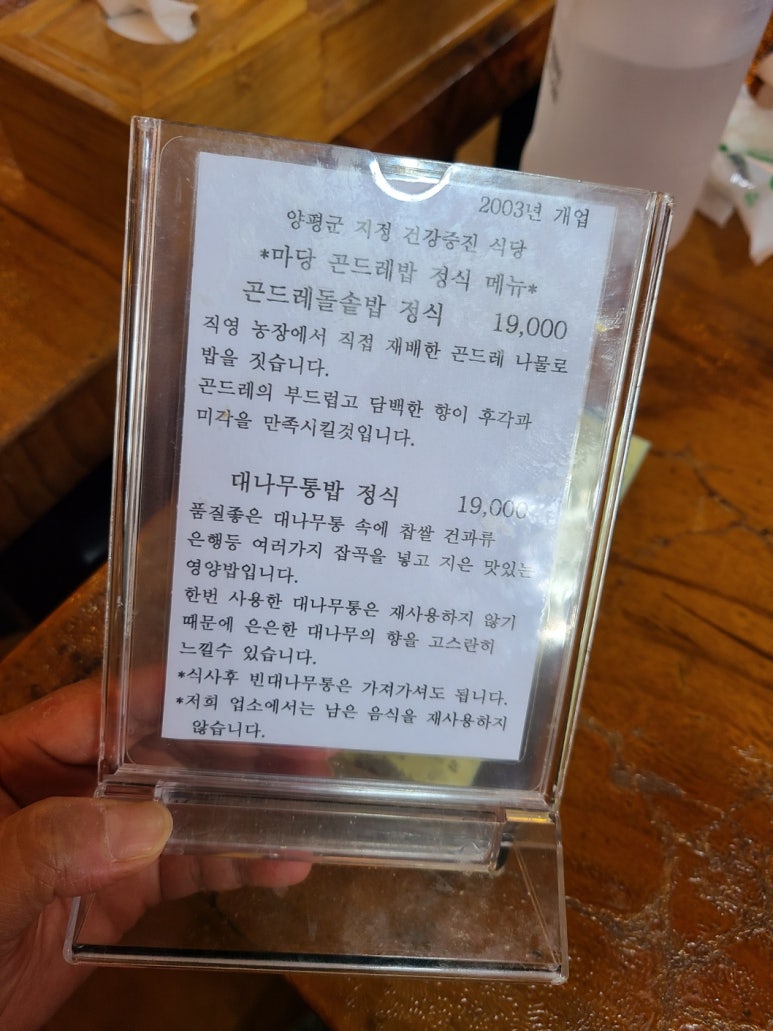 2003년 개업
양평군 지정 건강증진 식당
*마당 곤드레밥 정식 메뉴*
곤드레돌솥밥 정식 19,000
직영 농장에서 직접 재배한 곤드레 나물로
밥을 짓습니다.
곤드레의 부드럽고 담백한 향이 후각과
미각을 만족시킬것입니다.
대나무통밥 정식 19,000
품질좋은 대나무통 속에 찹쌀 건과류
은행등 여러가지 잡곡을 넣고 지은 맛있는
영양밥입니다.
한번 사용한 대나무통은 재사용하지 않기
때문에 은은한 대나무의 향을 고스란히
느낄수 있습니다.
*식사후 빈대나무통은 가져가셔도 됩니다.
*저희 업소에서는 남은 음식을 재사용하지
않습니다.